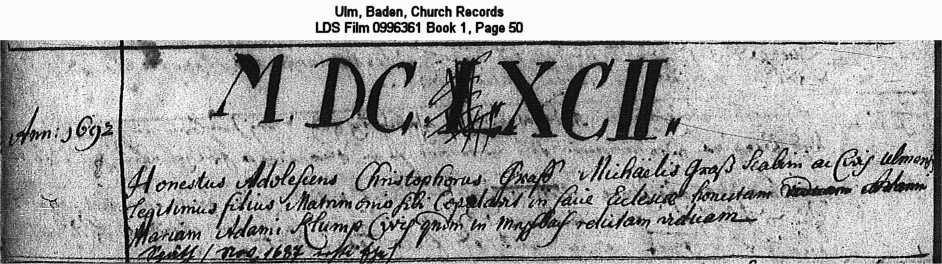 Ulm, Baden, Church Records
LDS Film 0996361 Book 1, Page 50
MDCLXCII.
Ann: 1692
Honestus Adolescens Christophorus Graß Michaëlis Graß Scabini ac Civis Ulmens
legitimus filius Matrimonio sibi copulavit in facie Ecclesiæ honestam
Mariam Adami Klump Civis in relictam viduam